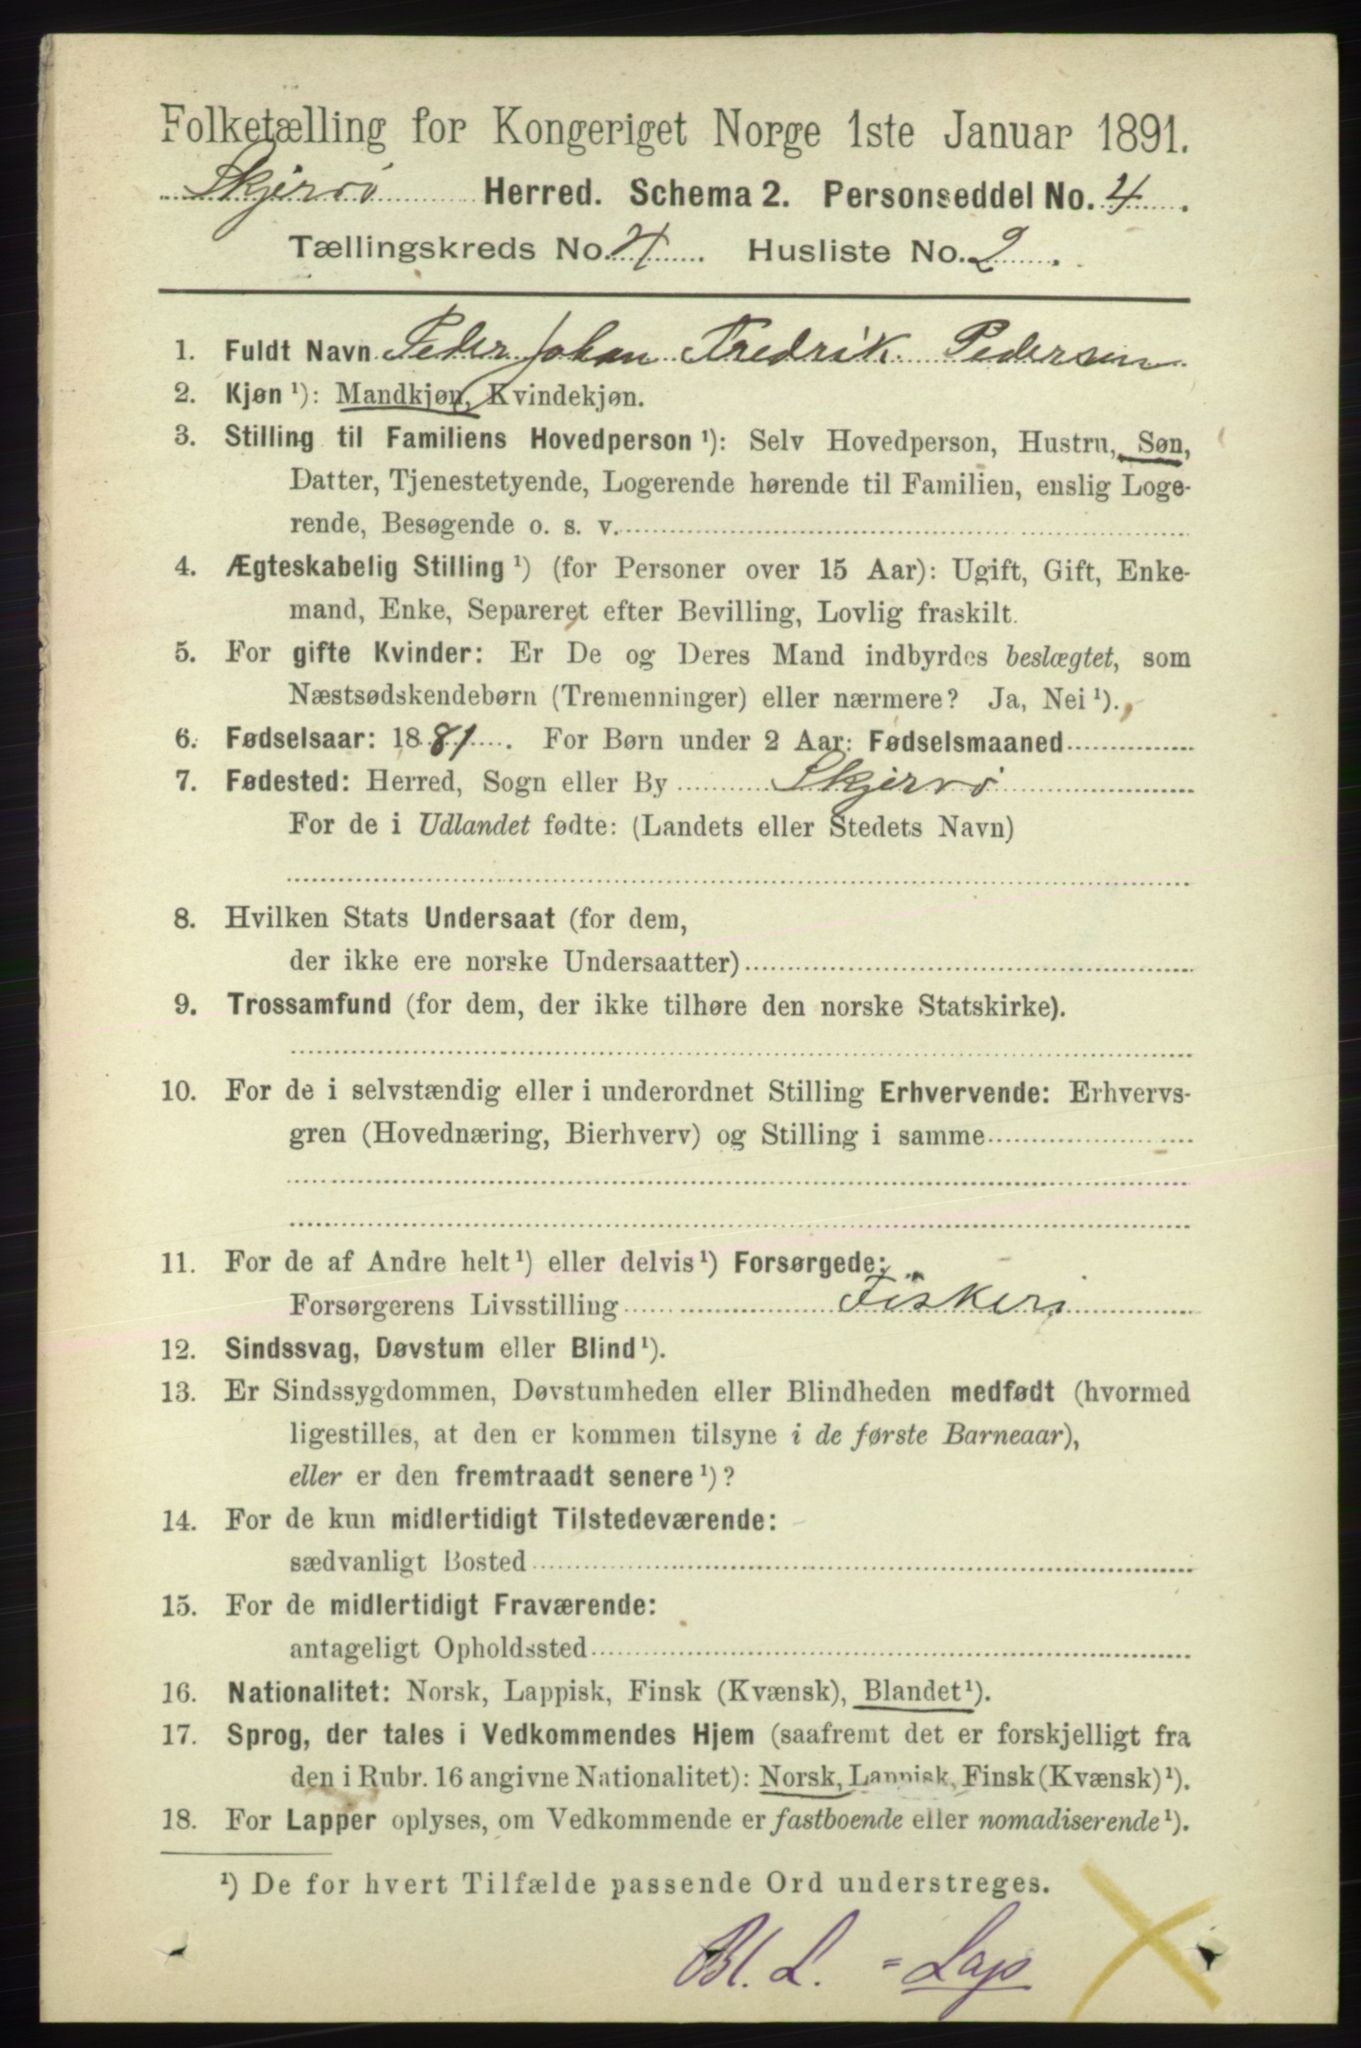 Folketælling for Kongeriget Norge 1ste Januar 1891.
Skjervö Herred. Schema 2. Personseddel No. 4.
Tællingskreds No. 4. Husliste No. 2.
1. Fuldt Navn Peder Johan Fredrik Pedersen
2. Kjøn ¹): Mandkjøn, Kvindekjøn.
3. Stilling til Familiens Hovedperson ¹): Selv Hovedperson, Hustru, Søn,
Datter, Tjenestetyende, Logerende hørende til Familien, enslig Loge-
rende, Besøgende o. s. v.
4. Ægteskabelig Stilling ¹) (for Personer over 15 Aar): Ugift, Gift, Enke-
mand, Enke, Separeret efter Bevilling, Lovlig fraskilt.
5. For gifte Kvinder: Er De og Deres Mand indbyrdes beslægtet, som
Næstsødskendebørn (Tremenninger) eller nærmere? Ja, Nei ¹).
6. Fødselsaar: 1881. For Børn under 2 Aar: Fødselsmaaned
7. Fødested: Herred, Sogn eller By Skjervö
For de i Udlandet fødte: (Landets eller Stedets Navn)
8. Hvilken Stats Undersaat (for dem,
der ikke ere norske Undersaatter)
9. Trossamfund (for dem, der ikke tilhøre den norske Statskirke).
10. For de i selvstændig eller i underordnet Stilling Erhvervende: Erhvervs-
gren (Hovednæring, Bierhverv) og Stilling i samme
11. For de af Andre helt ¹) eller delvis ¹) Forsørgede:
Forsørgerens Livsstilling Fiskeri
12. Sindssvag, Døvstum eller Blind ¹).
13. Er Sindssygdommen, Døvstumheden eller Blindheden medfødt (hvormed
ligestilles, at den er kommen tilsyne i de første Barneaar),
eller er den fremtraadt senere ¹)?
14. For de kun midlertidigt Tilstedeværende:
sædvanligt Bosted
15. For de midlertidigt Fraværende:
antageligt Opholdssted
16. Nationalitet: Norsk, Lappisk, Finsk (Kvænsk), Blandet ¹).
17. Sprog, der tales i Vedkommendes Hjem (saafremt det er forskjelligt fra
den i Rubr. 16 angivne Nationalitet): Norsk, Lappisk, Finsk (Kvænsk) ¹).
18. For Lapper oplyses, om Vedkommende er fastboende eller nomadiserende ¹).
¹) De for hvert Tilfælde passende Ord understreges.
Bl. L. = Lap